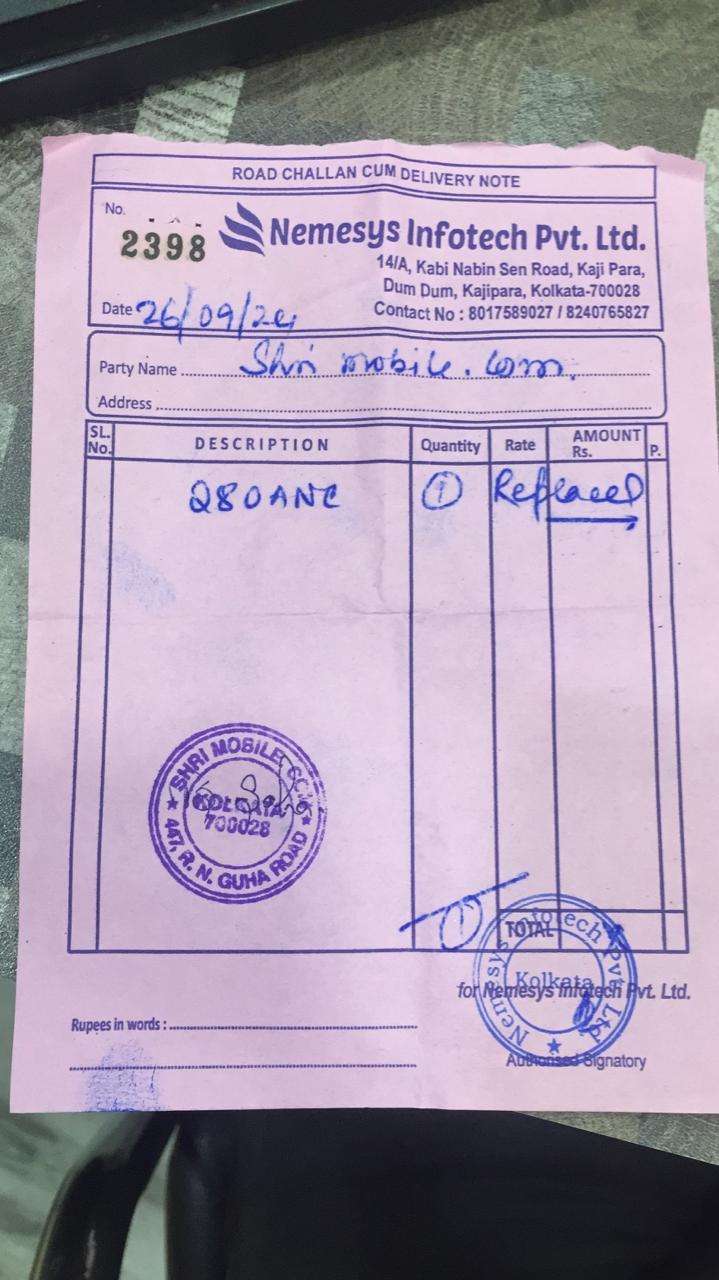 ROAD CHALLAN CUM DELIVERY NOTE
No.
2398
Nemesys Infotech Pvt. Ltd.
14/A, Kabi Nabin Sen Road, Kaji Para,
Dum Dum, Kajipara, Kolkata-700028
Contact No : 8017589027 / 8240765827
Date 26/09/24
Party Name Shri mobile. Com.
Address
SL. No. DESCRIPTION Quantity Rate AMOUNT Rs. P.
Q80ANC 1 Replaced
SHRI MOBILE. COM
KOLKATA
700028
447, R. N. GUHA ROAD
1 TOTAL
Nemesys Infotech Pvt. Ltd.
Kolkata
for Nemesys Infotech Pvt. Ltd.
Rupees in words :
Authorised Signatory